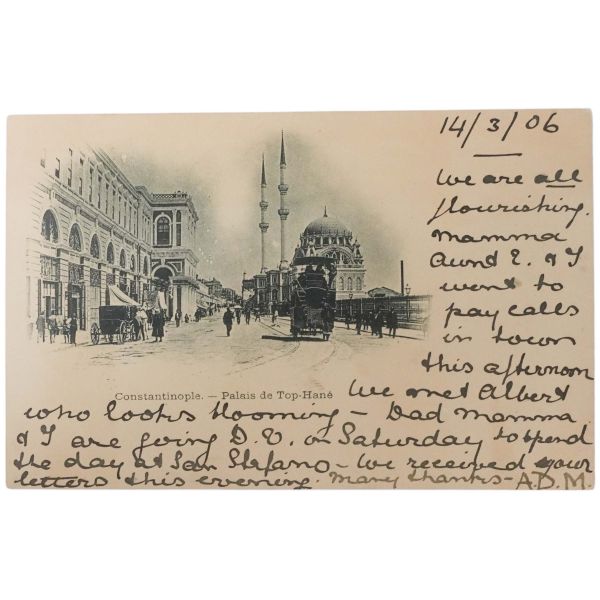 14/3/06
We are all
flourishing.
Mamma
Aunt E. & I
went to
pay calls
in town
this afternoon
Constantinople. — Palais de Top-Hané
We met Albert
who looks blooming — Dad Mamma
& I are going D.V. on Saturday to spend
the day at San Stefano — We received your
letters this evening. Many thanks — A.D.M.